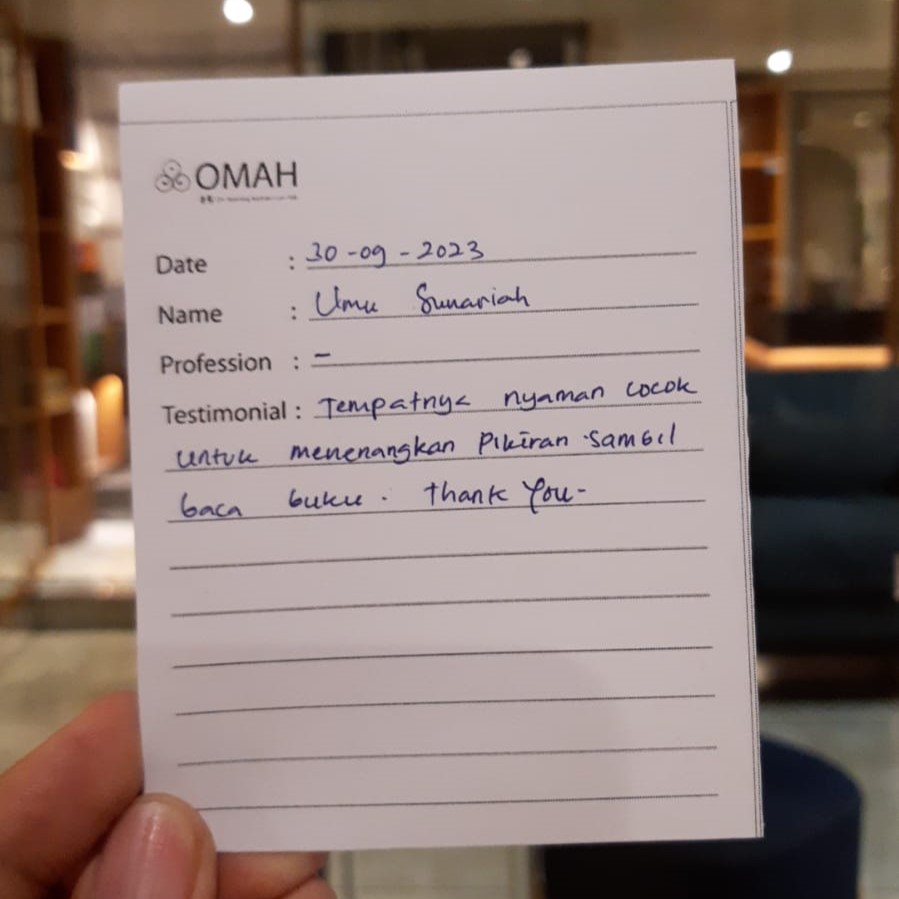 OMAH
Date : 30-09-2023
Name : Umu Sunariah
Profession : -
Testimonial : Tempatnya nyaman cocok
untuk menenangkan pikiran sambil
baca buku. Thank You-